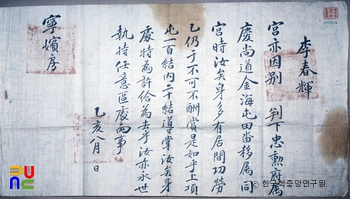 李春輝
宮亦因別 判下忠勲府屬
慶尚道金海屯田畓移屬同
宮時汝矣身多有居間功勞
乙仍于不可不酬賞是如乎上項
屯一百結內二十結導掌汝矣身
處特為許給為去乎汝亦永世
執持任意區處向事
乙亥 月 日
寧嬪房
한국학중앙연구원